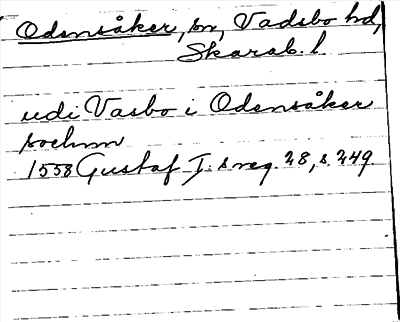 Odensåker, sn, Vadsbo hd,
Skarab. l.
udi Vasbo i Odensåker
sochnn
1558 Gustaf I:s reg. 28, s. 249.